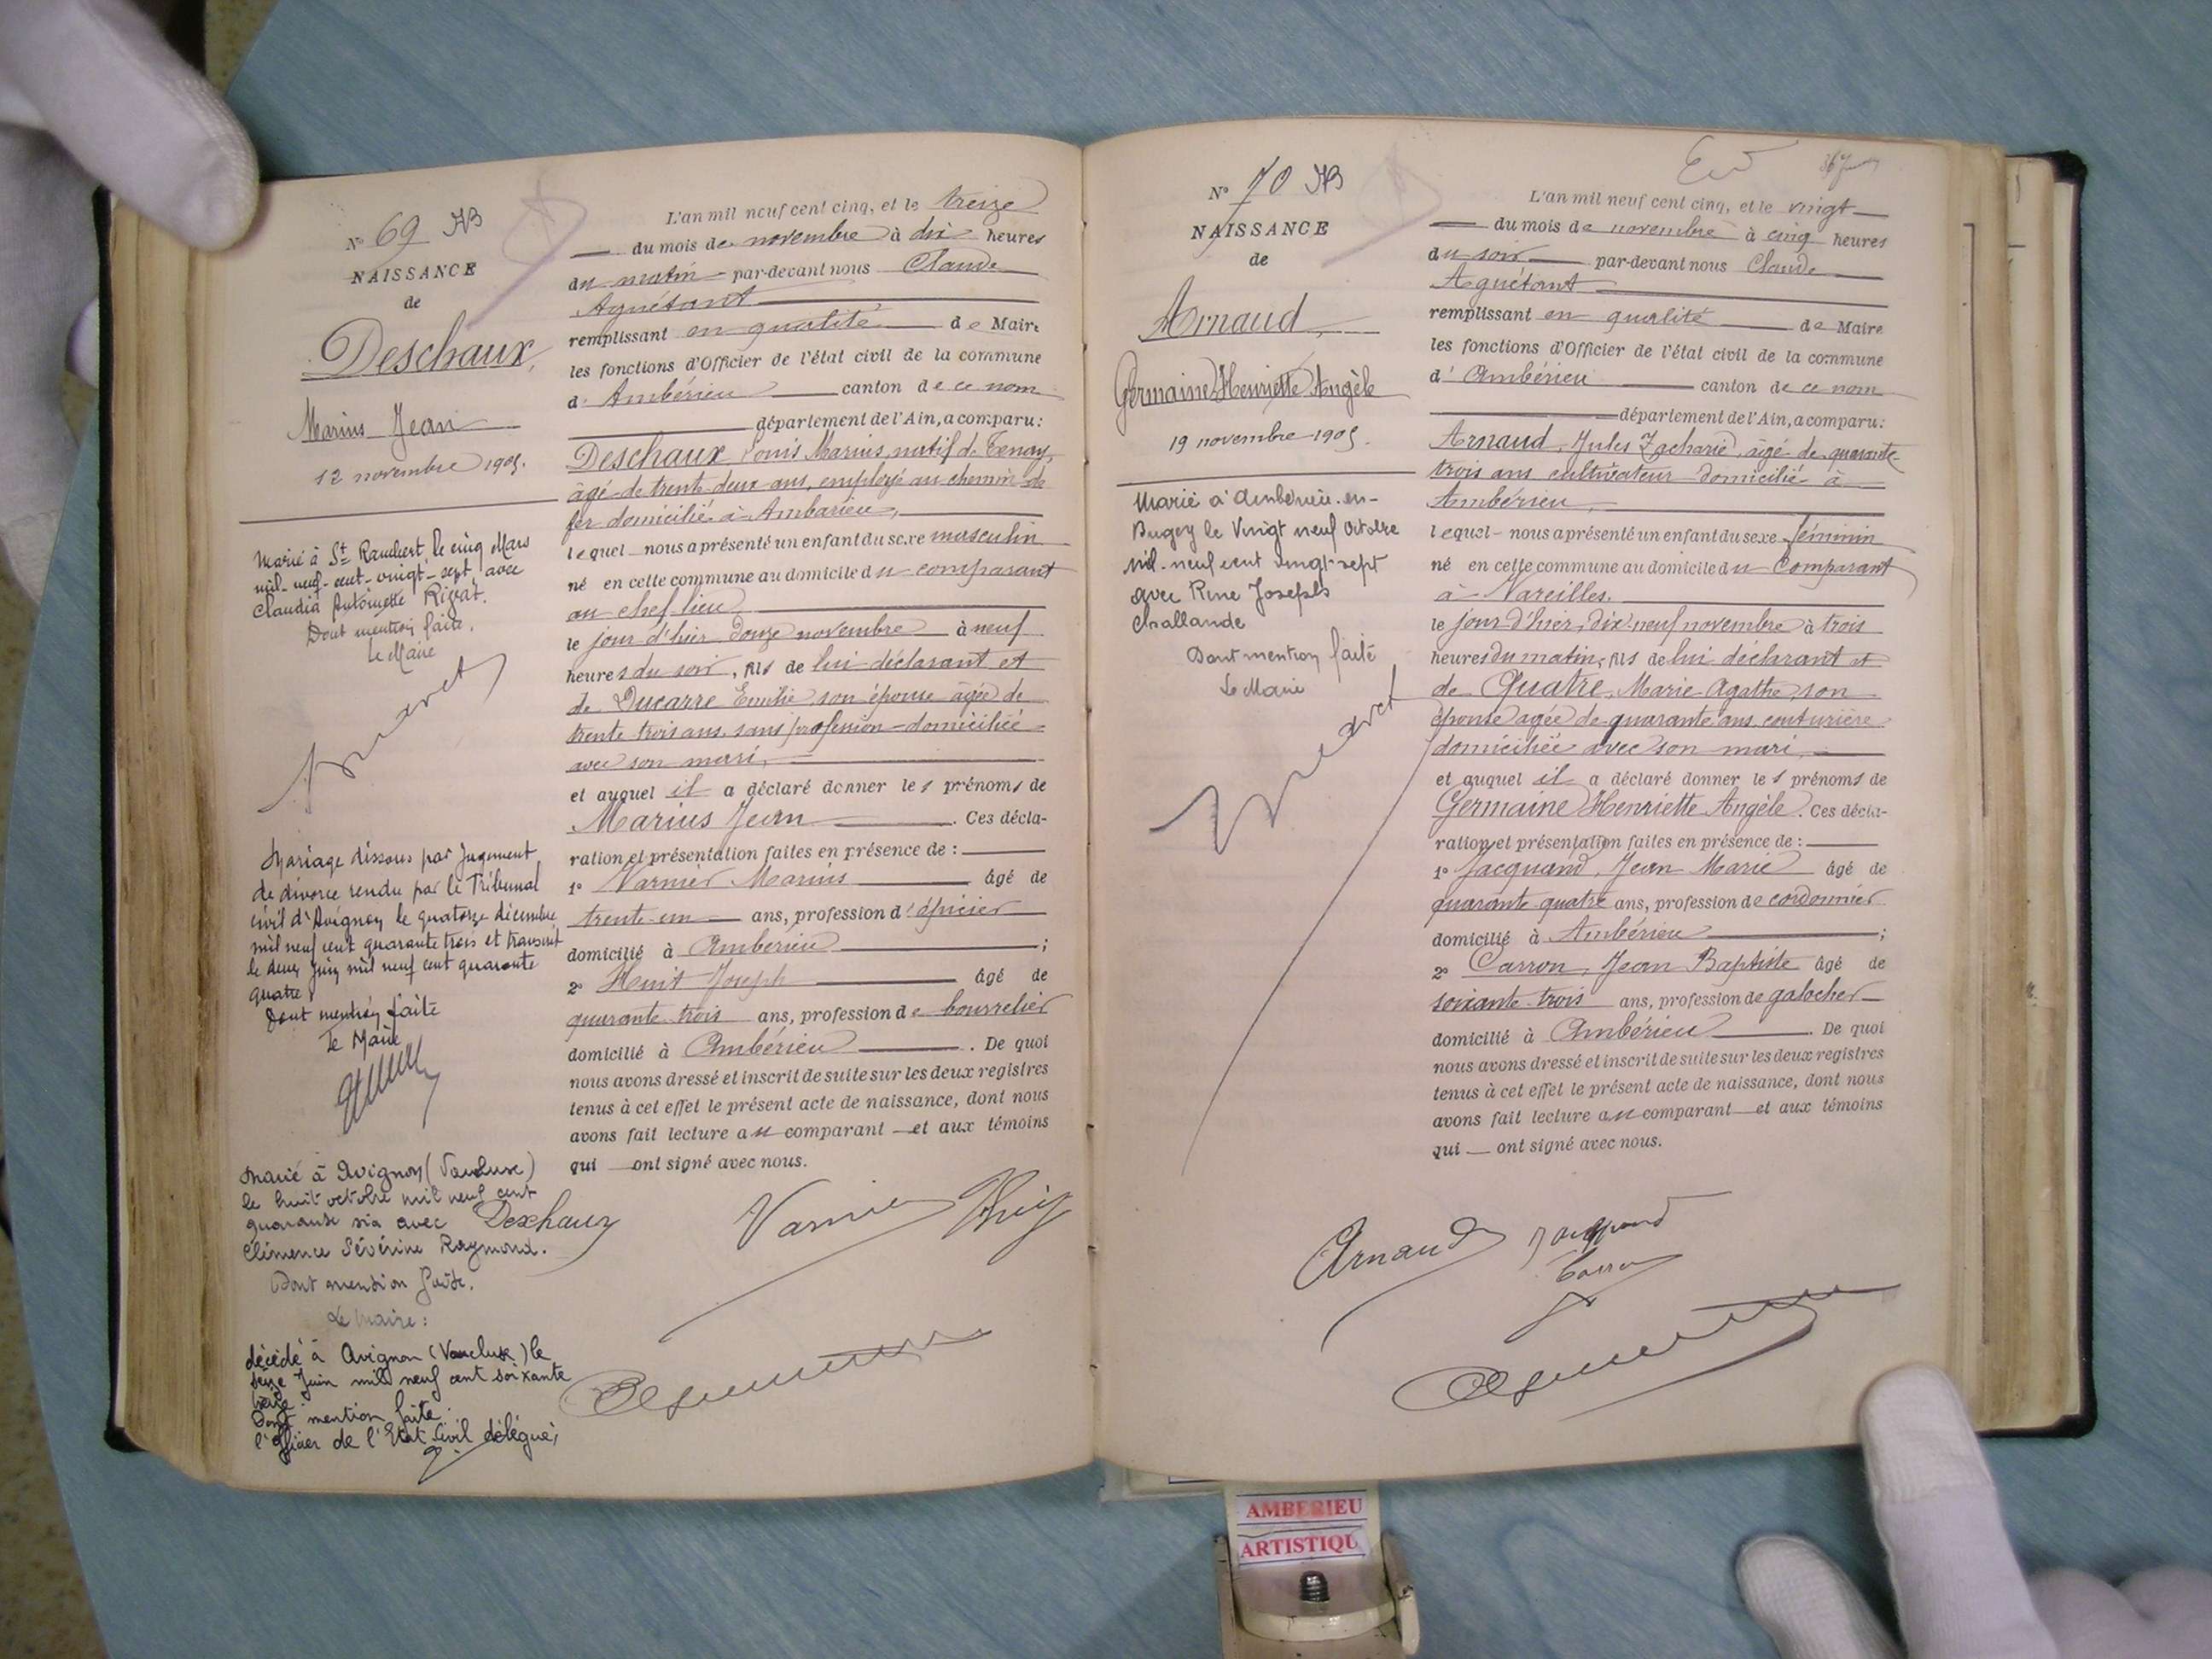 N° 69 AB
NAISSANCE
de
Deschaux,
Marius Jean
12 novembre 1905.
Marié à St Rambert le cinq Mars
mil-neuf-cent-vingt-sept avec
Claudia Antoinette
Dont mention faite.
Le Maire
Mariage dissous par Jugement
de divorce rendu par le Tribunal
civil d'Avignon le quatorze décembre
mil neuf cent quarante trois et transcrit
le deux Juin mil neuf cent quarante
quatre.
Dont mention faite
Le Maire
Marié à Avignon (Vaucluse)
le huit octobre mil neuf cent
quarante six avec
Clémence Séverine Raymond.
Dont mention faite.
Le Maire :
décédé à Avignon (Vaucluse) le
seize Juin mil neuf cent soixante
treize.
Dont mention faite.
l'Officier de l'Etat Civil délégué,
L'an mil neuf cent cinq, et le treize
du mois de novembre à dix heures
du matin par-devant nous Claude
Aguétant
remplissant en qualité de Maire
les fonctions d'Officier de l'état civil de la commune
d'Ambérieu canton de ce nom
département de l'Ain, a comparu :
Deschaux Louis Marius, natif de Tenay,
âgé de trente-deux ans, employé au chemin de
fer domicilié à Ambérieu,
lequel nous a présenté un enfant du sexe masculin
né en cette commune au domicile du comparant
au chef-lieu
le jour d'hier douze novembre à neuf
heures du soir, fils de lui déclarant et
de Ducarre Emilie son épouse âgée de
trente trois ans, sans profession domiciliée
avec son mari,
et auquel il a déclaré donner les prénoms de
Marius Jean . Ces décla-
ration et présentation faites en présence de :
1° Varnier Marius âgé de
trente-un ans, profession d'épicier
domicilié à Ambérieu ;
2° Joseph âgé de
quarante trois ans, profession de bourrelier
domicilié à Ambérieu . De quoi
nous avons dressé et inscrit de suite sur les deux registres
tenus à cet effet le présent acte de naissance, dont nous
avons fait lecture au comparant et aux témoins
qui ont signé avec nous.
Deschaux Varnier
N° 70 AB
NAISSANCE
de
Arnaud,
Germaine Henriette Angèle
19 novembre 1905.
Marié à Ambérieu-en-
Bugey le Vingt neuf Octobre
mil-neuf cent vingt-sept
avec René Joseph
Challande
Dont mention faite
Le Maire
L'an mil neuf cent cinq, et le vingt
du mois de novembre à cinq heures
du soir par-devant nous Claude
Aguétant
remplissant en qualité de Maire
les fonctions d'Officier de l'état civil de la commune
d'Ambérieu canton de ce nom
département de l'Ain, a comparu :
Arnaud, Jules Zacharie, âgé de quarante-
trois ans cultivateur domicilié à
Ambérieu,
lequel nous a présenté un enfant du sexe féminin
né en cette commune au domicile du Comparant
à Vareilles.
le jour d'hier, dix-neuf novembre à trois
heures du matin, fils de lui déclarant et
de Quatre, Marie Agathe, son
épouse agée de quarante ans, couturière
domiciliée avec son mari,
et auquel il a déclaré donner les prénoms de
Germaine Henriette Angèle. Ces décla-
ration et présentation faites en présence de :
1° Jacquand, Jean Marie âgé de
quarante quatre ans, profession de cordonnier
domicilié à Ambérieu ;
2° Carron, Jean Baptiste âgé de
soixante-trois ans, profession de galocher
domicilié à Ambérieu . De quoi
nous avons dressé et inscrit de suite sur les deux registres
tenus à cet effet le présent acte de naissance, dont nous
avons fait lecture au comparant et aux témoins
qui ont signé avec nous.
Arnaud Jacquand
Carron
AMBERIEU
ARTISTIQU